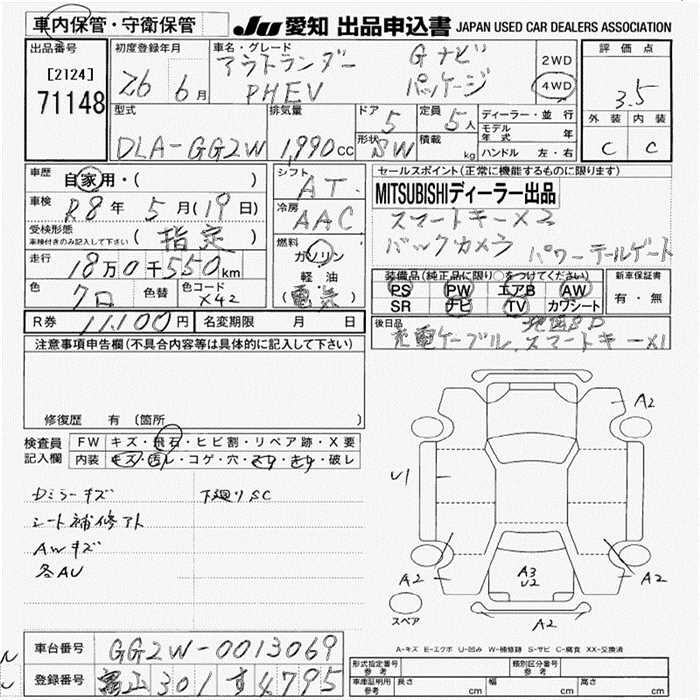 車内保管・守衛保管
JU 愛知 出品申込書 JAPAN USED CAR DEALERS ASSOCIATION
出品番号
[2124]
71148
初度登録年月
26 6月
車名・グレード
アウトランダー Gナビ
PHEV パッケージ
2WD
4WD
評価点
3.5
外装 内装
C C
型式
DLA-GG2W
排気量
1,990cc
ドア 5
形状 SW
定員 5人
積載 kg
ディーラー・並行
モデル年式 年
ハンドル 左・右
車歴 自家用・( )
車検 R8年 5月(19日)
受検形態
車検付きのみ記入して下さい
( 指定 )
走行 18万0千550km
色 色替 色コード X42
シフト AT
冷房 AAC
燃料
ガソリン
軽油
(電気)
セールスポイント(正常に機能するものに限ります)
MITSUBISHIディーラー出品
スマートキー×2
バックカメラ パワーテールゲート
装備品(純正品に限り○をつけてください)
PS PW エアB AW
SR ナビ TV カワシート
新車保証書
有・無
R券 11,100円 名変期限 月 日
後日品
地図SD
充電ケーブル、スマートキー×1
注意事項申告欄(不具合内容等は具体的に記入して下さい)
修復歴 有 (箇所 )
検査員
記入欄
FW キズ・飛石・ヒビ割・リペア跡・X要
内装 キズ・汚レ・コゲ・穴・スレ・キレ・破レ
Dミラーキズ 下廻りSC
シート補修アト
AWキズ
各AU
A2
U1
A2
A3
U2
A2
A2
スペア
A-キズ E-エクボ U-凹み W-補修跡 S-サビ C-腐食 XX-交換済
車台番号 GG2W-0013069
登録番号 富山301す4795
形式指定番号
参考
類別区分番号
参考
車庫証明用
参考
長さ cm 幅 cm 高さ cm